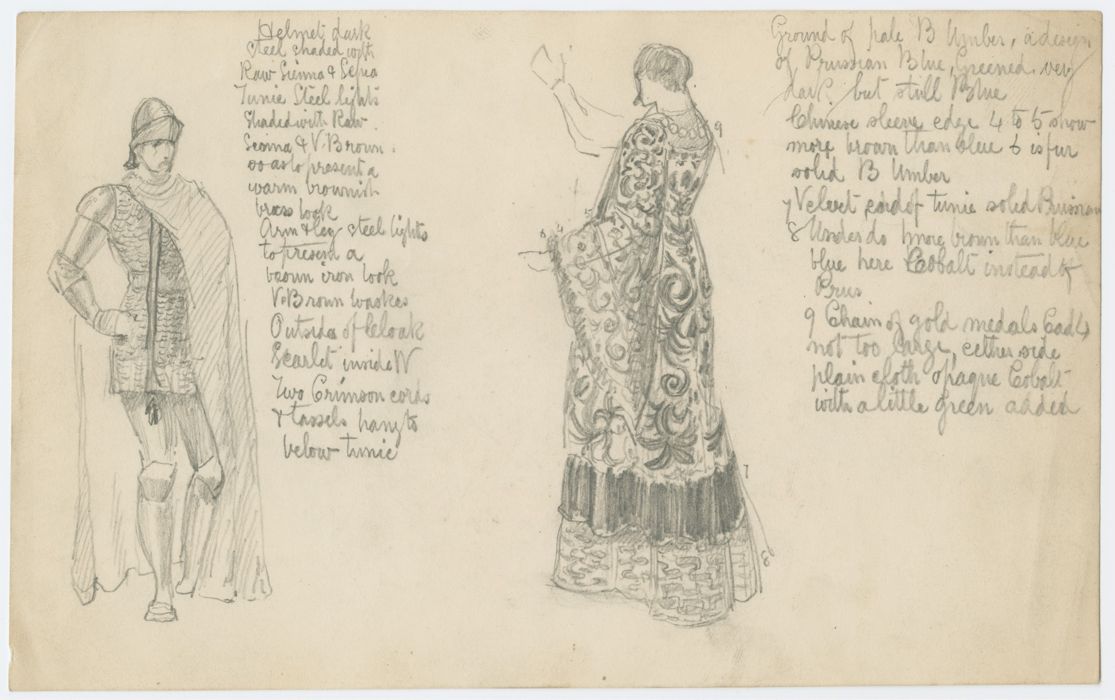 Helmet dark
steel shaded with
Raw Sienna & Sepia
Tunic Steel lights
Shaded with Raw
Sienna & V. Brown.
so as to present a
warm brownish
brass look
Arm & leg steel lights
to present a
brown iron look
V. Brown washes
Outside of Cloak
Scarlet inside W
Two Crimson cords
& tassels hang to
below tunic
Ground of pale B Umber, a design
of Prussian Blue, Greened. very
dark but still Blue
Chinese sleeve edge 4 to 5 show
more brown than blue 6 is fur
solid B Umber
7 Velvet end of tunic solid Prussian
8 Under do more brown than blue
blue here Cobalt instead of
Prus
9 Chain of gold medals Cad
not too large, either side
plain cloth opaque Cobalt
with a little green added
9
4
5
6
7
8